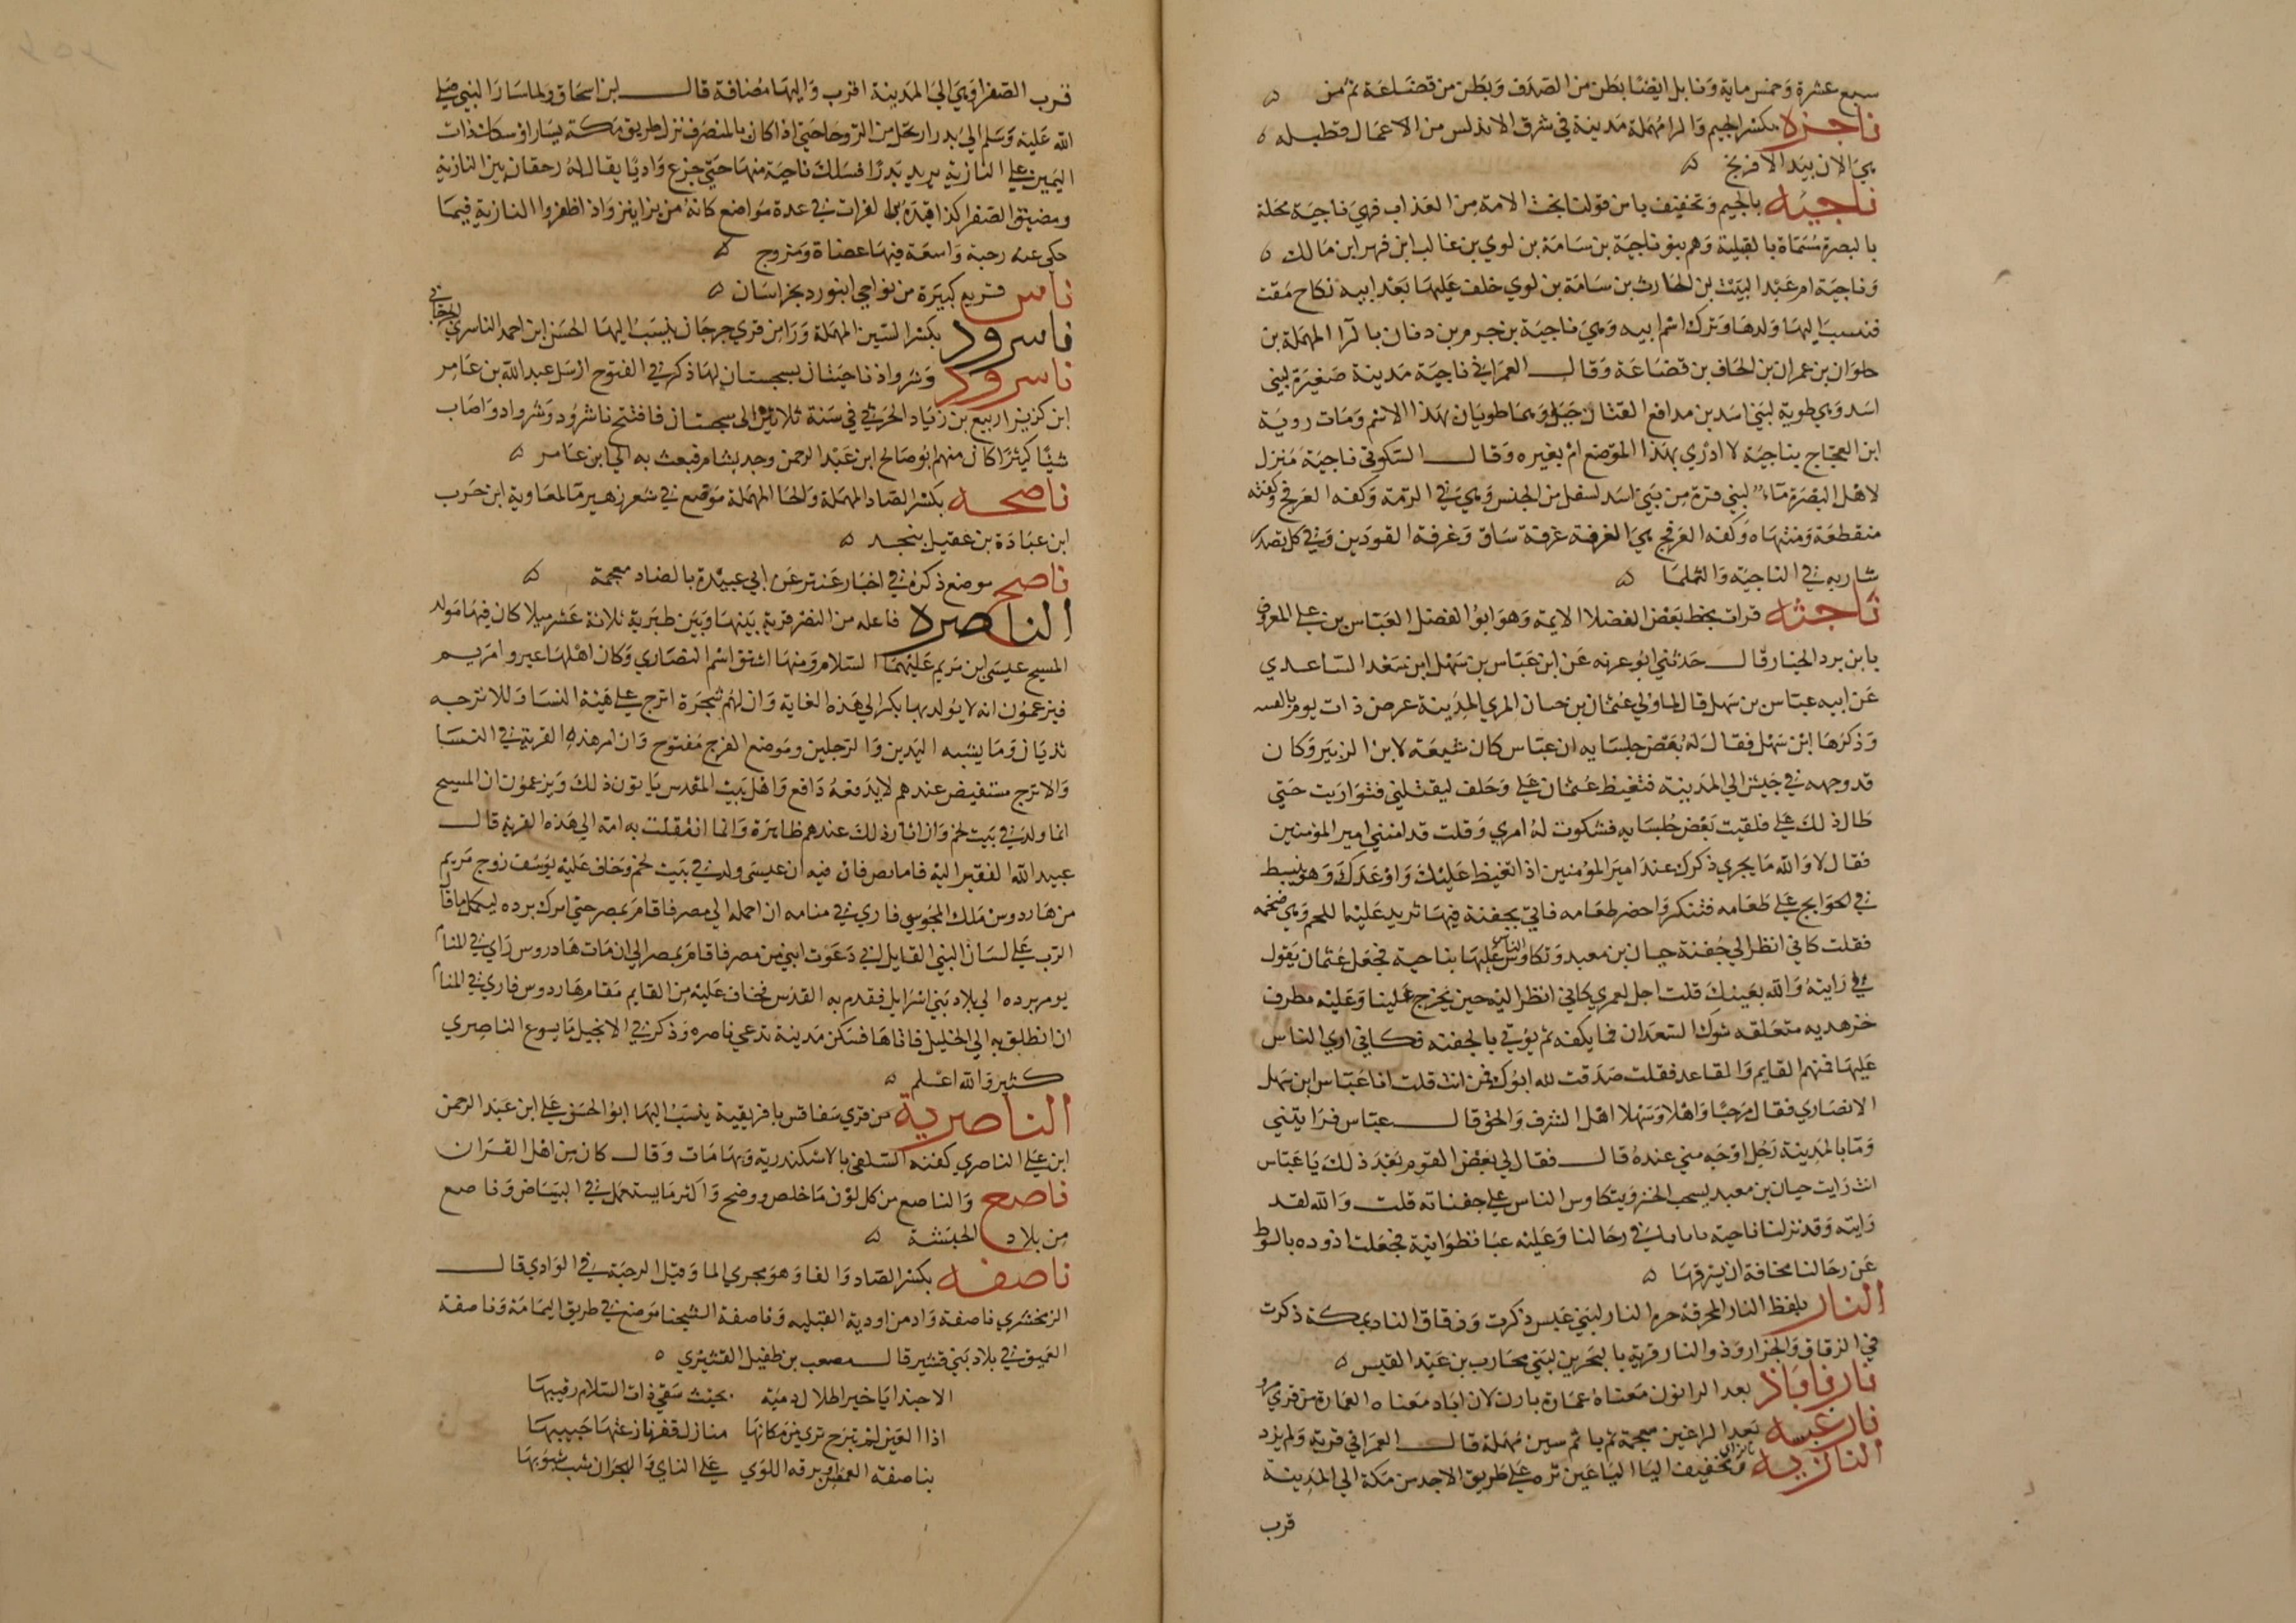 سبع عشرة وخمس ماية ونابل ايضا بطن من الصدف وبطن من قضاعة ثم من
ناجره بكسر الجيم والرا مهملة مدينة في شرق الاندلس من الاعمال قطيله
هي الان بيد الافرنج
ناجيه بالجيم وتخفيف يا من قولنا نجت الامة من العذاب فهي ناجية محلة
بالبصرة مسماة بالقبيلة وهم بنو ناجية بن سامة بن لوي بن غالب ابن فهر ابن مالك
وناجية ام عبد البيت بن الحارث بن سامة بن لوي خلف عليها بعد ابيه نكاح مقت
فنسب اليها ولدها وترك اسم ابيه وهي ناجية بن جرم بن ربان بالرا المهملة بن
حلوان بن عمران بن الحاف بن قضاعة وقال العمراني ناجية مدينة صغيرة لبني
اسد وهي طوية لبني اسد بن مدافع القنان جبل وهما طويان بهذا الاسم ومات روبة
ابن العجاج بناجية لا ادري بهذا الموضع ام بغيره وقال السكوني ناجية منزل
لاهل البصرة ماء لبني قرة من بني اسد اسفل من الحبس وهي في الرمة وكفه العرفج وكفته
منقطعة ومنتهاه وكفه العرفج هي الغرفة غرفة ساق وغرفة القودين وفي كل تصدر
شاربه في الناجية والثلما
ناجثه قرات بخط بعض الفضلا الايمة وهو ابو الفضل العباس بن علي المعروف
بابن برد الخيار قال حدثني ابو عرنه عن ابن عباس بن سهل ابن سعد الساعدي
عن ابيه عباس بن سهل قال لما ولي عثمان بن حسان المري المدينة عرض ذات يوم بالفتنه
وذكرها ابن سهل فقال له بعض جلسايه ان عباس كان شيعة لابن الزبير وكان
قد وجهه في جيش الي المدينة فتغيظ عثمان علي وحلف ليقتلني فتواريت حتي
طال ذلك علي فلقيت بعض جلسايه فشكوت له امري وقلت قد امنني امير المومنين
فقال لا والله ما يجري ذكرك عند امير المومنين اذا تغيظ عليك واوعدك وهو ينبسط
في الحوايج علي طعامه فتنكر واحضر طعامه فاتي بجفنة فيها ثريد عليها اللحم وهي ضخمه
فقلت كاني انظر الي جفنة حيان بن معبد وتكاوس الناس عليها بناحية فجعل عثمان يقول
هل رايته والله بعينك قلت اجل لعمري كاني انظر اليه حين يخرج علينا وعليه مطرف
خز هدبه متعلقه شوك السعدان فما يكفه ثم يوتي بالجفنه فكاني اري الناس
عليها فمنهم القايم والقاعد فقلت صدقت لله ابوك فمن انت قلت انا عباس ابن سهل
الانصاري فقال مرحبا واهلا وسهلا اهل الشرف والحق قال عباس فرايتني
وما بالمدينة رجل اوجه مني عنده قال فقال لي بعض القوم بعد ذلك يا عباس
انت رايت حيان بن معبد يسحب الخز ويتكاوس الناس علي جفناته قلت والله لقد
رايته وقد نزلنا ناحية فاتانا في رحالنا وعليه عبا قطوانية فجعلت اذوده بالسوط
عن رحالنا مخافة ان يسرقها
النار بلفظ النار المحرقة حره النار لبني عبس ذكرت وزقاق النار بمكة ذكرت
في الزقاق والحرار وذو النار قرية بالبحرين لبني محارب بن عبد القيس
نارناباذ بعد الرا نون معناه عمارة نارن لان اباد معناه العمارة من قري مرو
نارغيسه بعد الرا غين معجمة ثم يا ثم سين مهملة قال العمراني قرية ولم يزد
النازيه بالزاي وتخفيف اليا اليا عين ثره علي طريق الاخذ من مكة الي المدينة
قرب
قرب الصفرا وهي الي المدينة اقرب واليها مضافة قال ابن اسحاق ولما سار النبي صلي
الله عليه وسلم الي بدر ارتحل من الروحا حتي اذا كان بالمنصرف نزل طريق مكة يسارا وسلك ذات
اليمين علي النازية يريد بدرا فسلك ناحية منها حتي جزع واديا يقال له رحقان بين النازية
ومضيق الصفرا كذا قيده ابن الفرات في عدة مواضع كانه من نزا ينزو اذا طفر والنازية فيما
حكي عنه رحبة واسعة فيها عضاة ومروج
ناس قرية كبيرة من نواحي ابيورد بخراسان
ناسرود بكسر السين المهملة ورا من قري جرجان ينسب اليها الحسن ابن احمد الناسري
ناسرود وشرواذ ناحيتان بسجستان لهما ذكر في الفتوح ارسل عبد الله بن عامر
ابن كريز الربيع بن زياد الحرثي في سنة ثلاثين الي سجستان فافتتح ناشرود وشرواد واصاب
شيا كثيرا كان منهم ابو صالح ابن عبد الرحمن وجد بشام فبعث به الي ابن عامر
ناصحه بكسر الصاد المهملة والحا المهملة موضع في شعر زهير ما لمعاوية ابن حرب
ابن عبادة بن عقيل بنجد
ناصح موضع ذكره في اخبار عنتر عن ابي عبيدة بالضاد معجمة
الناصره فاعله من النصر قرية بينها وبين طبرية ثلاثة عشر ميلا كان فيها مولد
المسيح عيسي ابن مريم عليهما السلام ومنها اشتق اسم النصاري وكان اهلها عيروا مريم
فيزعمون انه لا يولد بها بكر الي هذه الغاية وان لهم شجرة اترج علي هيئة النسا وللاترجه
ثديان وما يشبه اليدين والرجلين وموضع الفرج مفتوح وان امر هذه القرية في النسا
والاترج مستفيض عندهم لا يدفعه دافع واهل بيت المقدس يابون ذلك ويزعمون ان المسيح
انما ولد في بيت لحم وان اثار ذلك عندهم ظاهرة وانما انتقلت به امه الي هذه القرية قال
عبيد الله الفقير اليه فاما نص فان فيه ان عيسي ولد في بيت لحم وخاف عليه يوسف زوج مريم
من هاردوس ملك المجوس فاري في منامه ان احمله الي مصر فاقام بمصر حتي امرك برده ليكمل ما قال
الرب علي لسان النبي القايل في دعوت ابني من مصر فاقام بمصر الي ان مات هاردوس راي في المنام
يوم برده الي بلاد بني اسرايل فقدم به القدس فخاف عليه من القايم مقام هاردوس فاري في المنام
ان انطلق به الي الخليل فاتاها فسكن مدينة تدعي ناصره وذكر في الانجيل يا يسوع الناصري
كثير والله اعلم
الناصرية من قري سفاقس بافريقية ينسب اليها ابو الحسن علي ابن عبد الرحمن
ابن علي الناصري كفنه السلفي بالاسكندرية وبها مات وقال كان من اهل القران
ناصع والناصع من كل لون ما خلص ووضح واكثر ما يستعمل في البياض وناصع
من بلاد الحبشة
ناصفه بكسر الصاد والفا وهو مجري الما وقيل الرحبة في الوادي قال
الزمخشري ناصفة واد من اودية القبليه وناصفة الشجنا موضع في طريق اليمامة وناصفة
العميق في بلاد بني قشير قال مصعب بن طفيل القشيري
الا حبذا يا خير اطلال دمية بحيث سقي ذات السلام رقيبها
اذا العين لم تبرح تري من مكانها منازل قفر نازعتها جنوبها
بناصفة العمقين او برقة اللوي علي الناي والهجران شب شبوبها